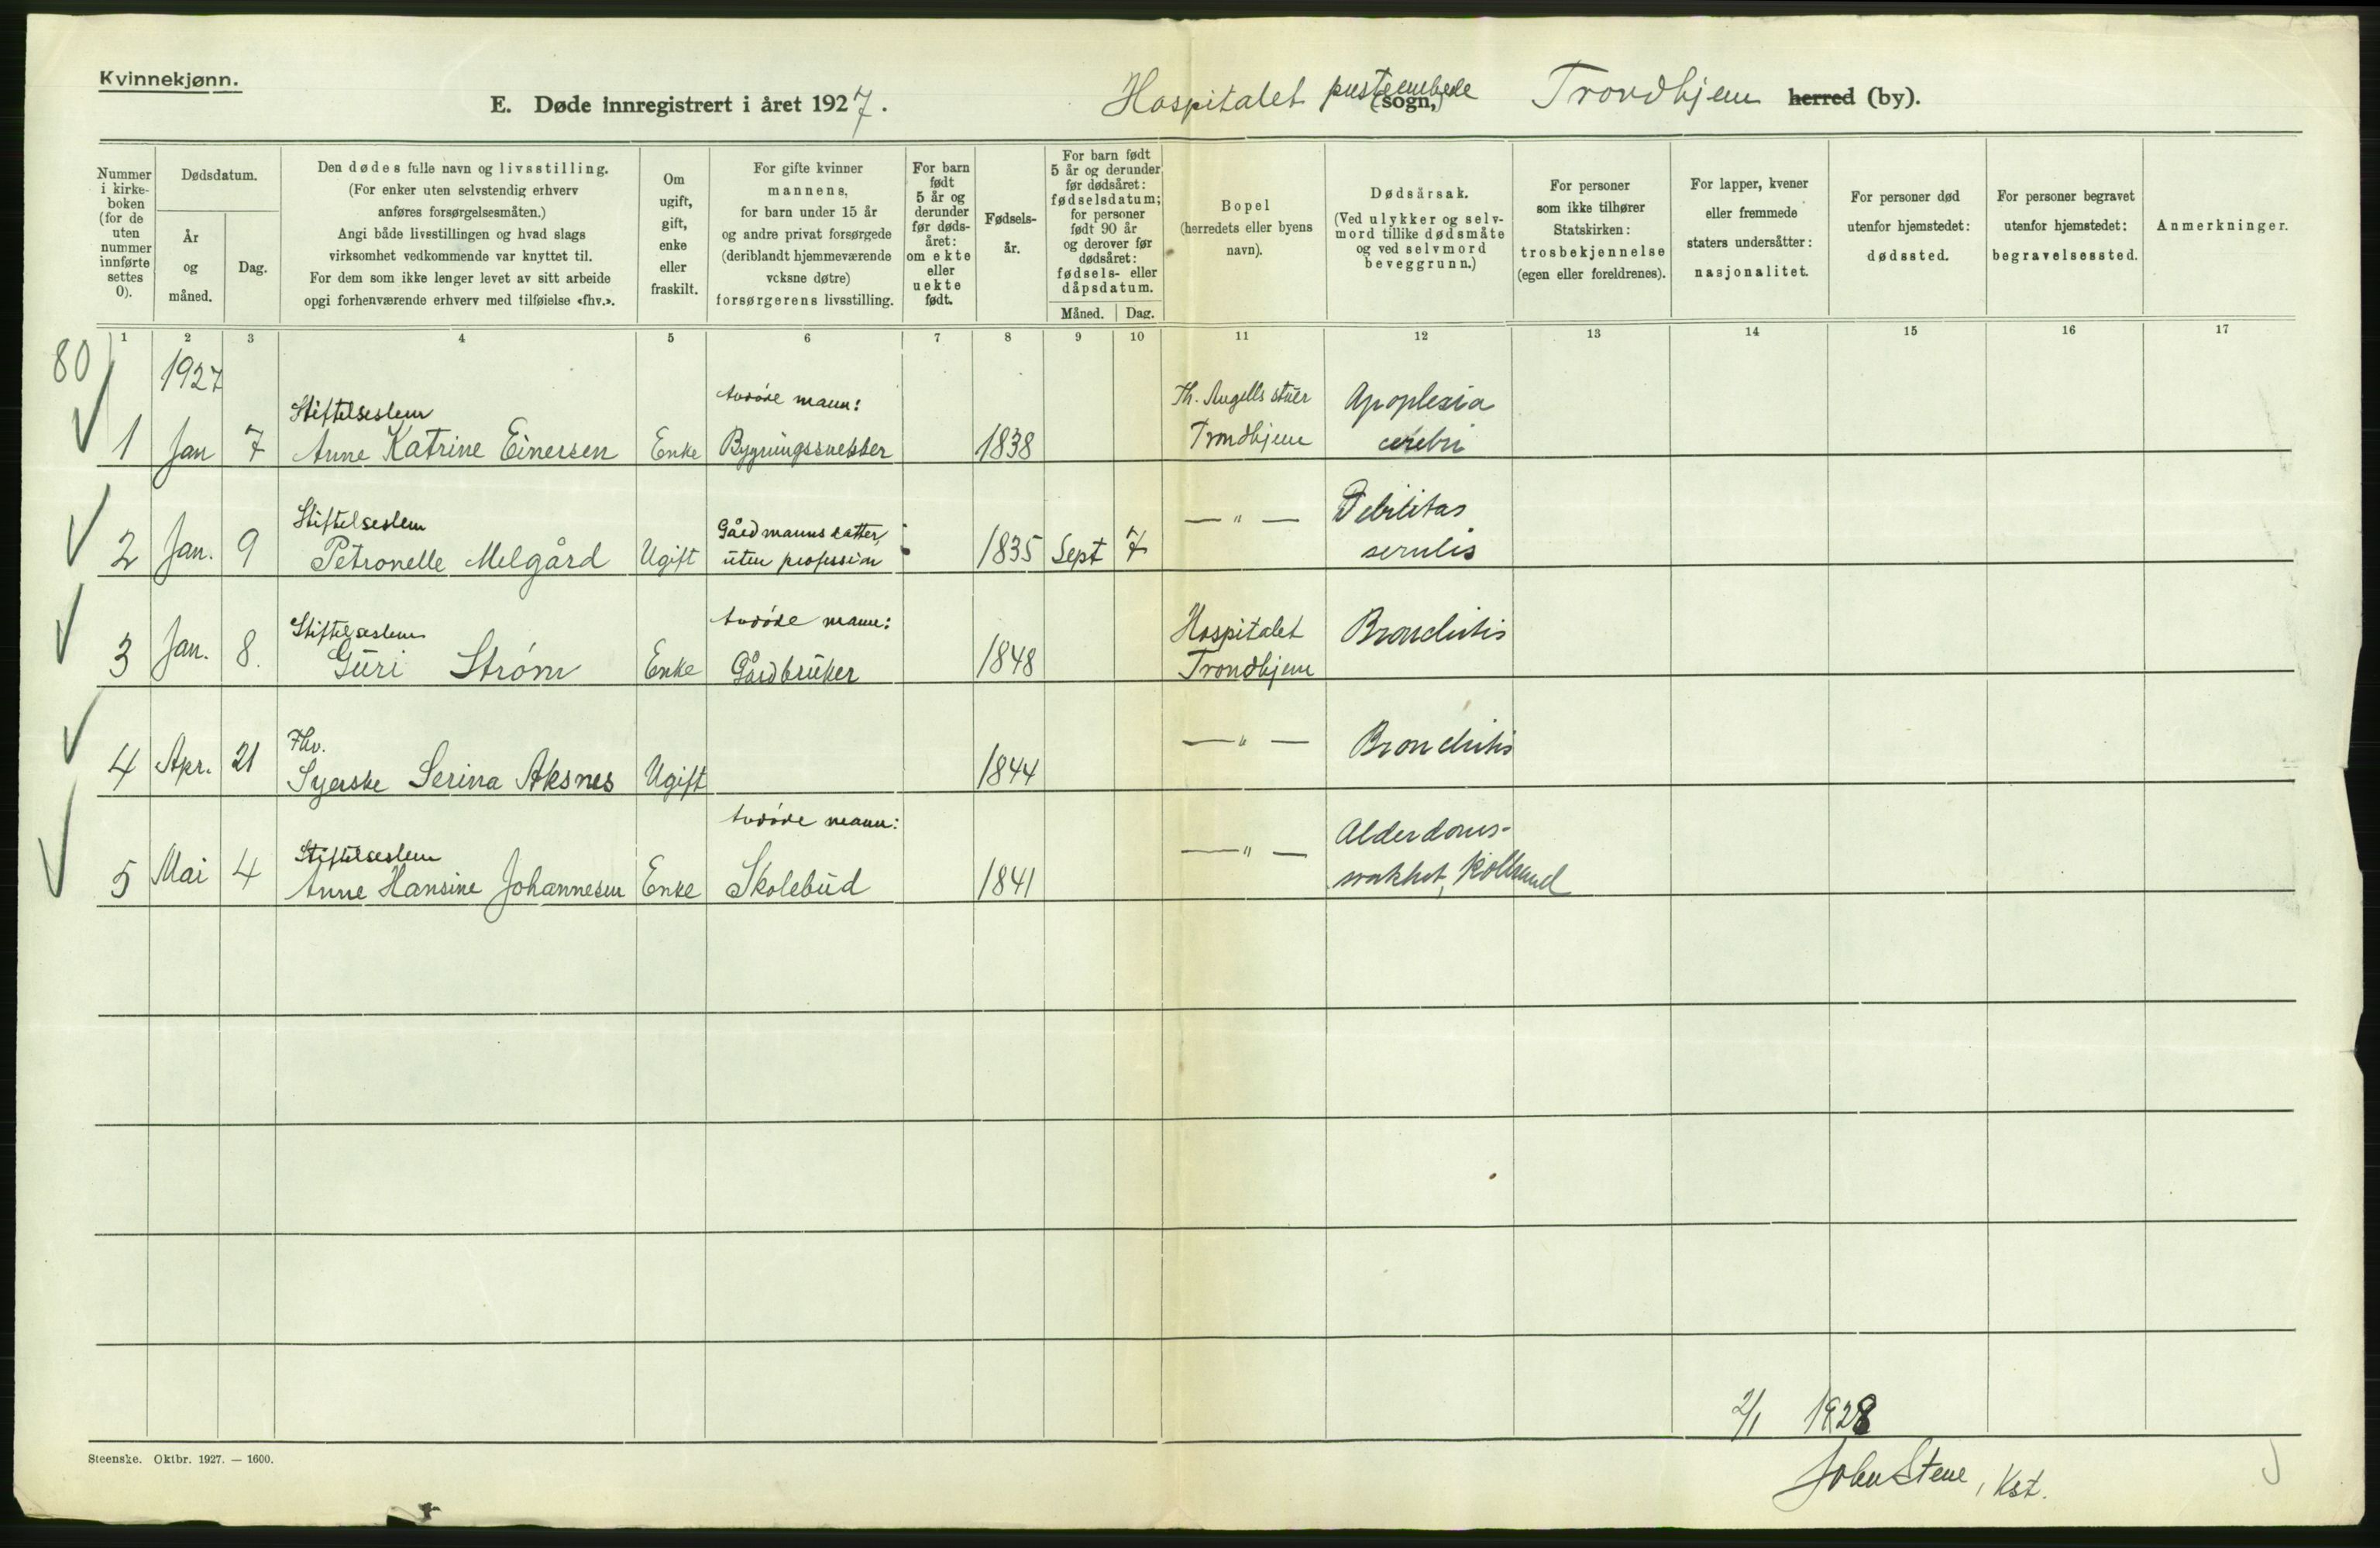 Kvinnekjønn.
E. Døde innregistrert i året 1927.
Hospitalet presteembede (sogn,) Trondhjem herred (by).
Nummer i kirke- boken (for de uten nummer innførte settes 0).
Dødsdatum.
År og måned.
Dag.
Den dødes fulle navn og livsstilling.
(For enker uten selvstendig erhverv
anføres forsørgelsesmåten.)
Angi både livsstillingen og hvad slags
virksomhet vedkommende var knyttet til.
For dem som ikke lenger levet av sitt arbeide
opgi forhenværende erhverv med tilføielse «fhv.».
Om ugift, gift, enke eller fraskilt.
For gifte kvinner
mannens,
for barn under 15 år
og andre privat forsørgede
(deriblandt hjemmeværende
voksne døtre)
forsørgerens livsstilling.
For barn født 5 år og derunder før døds- året: om ekte eller uekte født.
Fødsels- år.
For barn født
5 år og derunder
før dødsåret:
fødselsdatum;
for personer
født 90 år
og derover før
dødsåret:
fødsels- eller
dåpsdatum.
Måned. Dag.
Bopel
(herredets eller byens
navn).
Dødsårsak.
(Ved ulykker og selv-
mord tillike dødsmåte
og ved selvmord
beveggrunn.)
For personer
som ikke tilhører
Statskirken:
trosbekjennelse
(egen eller foreldrenes).
For lapper, kvener
eller fremmede
staters undersåtter:
nasjonalitet.
For personer død
utenfor hjemstedet:
dødssted.
For personer begravet
utenfor hjemstedet:
begravelsessted.
Anmerkninger.
1 2 3 4 5 6 7 8 9 10 11 12 13 14 15 16 17
80
1927
Stiftelseslem avdøde mann: Th. Angells stuer Apoplexia
1 Jan 7 Anne Katrine Einersen Enke Bygningssnekker 1838 Trondhjem cerebri
Stiftelseslem Gårdmannsdatter, — " — Debilitas
2 Jan. 9 Petronelle Melgård Ugift uten profession 1835 Sept 7 senilis
Stiftelseslem avdøde mann: Hospitalet Bronchitis
3 Jan. 8. Guri Strøm Enke Gårdbruker 1848 Trondhjem
Fhv. — " — Bronchitis
4 Apr. 21 Syerske Serina Aksnes Ugift 1844
Stiftelseslem avdøde mann: — " — Alderdoms-
5 Mai 4 Anne Hansine Johannesen Enke Skolebud 1841 svakhet,
2/1 1928
John Stene, Kst.
Steenske. Oktbr. 1927. — 1600.